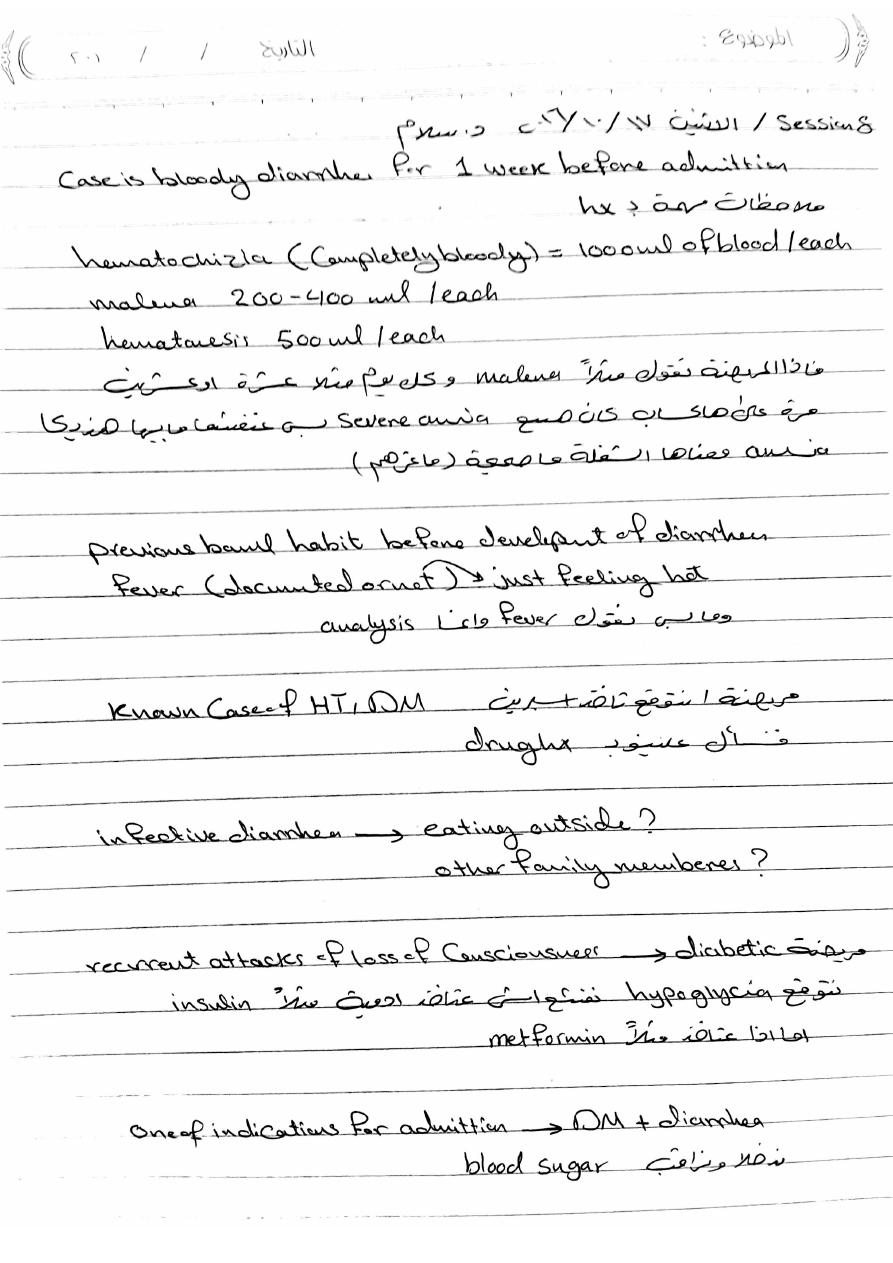 الموضوع :
التاريخ / / ٢٠١
Session 8 / الاثنين ١٧/١٠/٢٠١٦ د. سلام
Case is bloody diarrhea for 1 week before admittion
ملاحظات مهمة بـ hx
hematochizia (Completely bloody) = 1000 ml of blood / each
malena 200-400 ml / each
hematemesis 500 ml / each
فاذا المريضة تقول مثلاً malena وكل يوم مثلا عشرة او عشرين
مرة على هالحساب كان صح severe anemia بس
anemia معناها الشغلة ما صحيحة
previous bowel habit before development of diarrhea
fever (documented or not) → just feeling hot
fever analysis
known case of HT, DM مريضة نتوقع تاخذ اسبرين
فنسأل drug hx
infective diarrhea → eating outside?
other family memberes?
recurrent attacks of loss of Consciousness → diabetic مريضة
نتوقع hypoglycemia ادوية مثلاً insulin
اما اذا مثلاً metformin
One of indications for admittion → DM + diarrhea
ندخلها ونراقب blood sugar